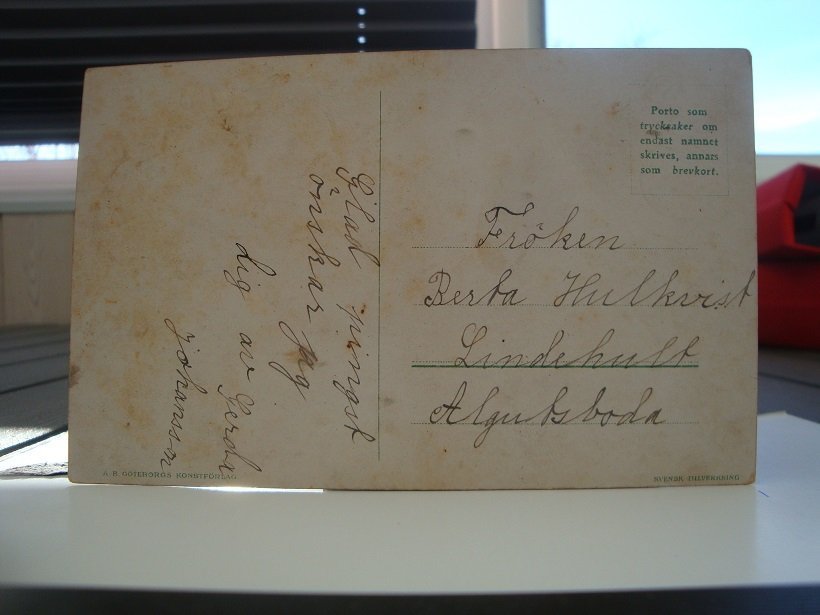 Glad pingst
önskar jag
dig av Gerda
Johansson
A. B. GÖTEBORGS KONSTFÖRLAG
Porto som
trycksaker om
endast namnet
skrives, annars
som brevkort.
Fröken
Berta Hultkvist
Lindehult
Algutsboda
SVENSK TILLVERKNING